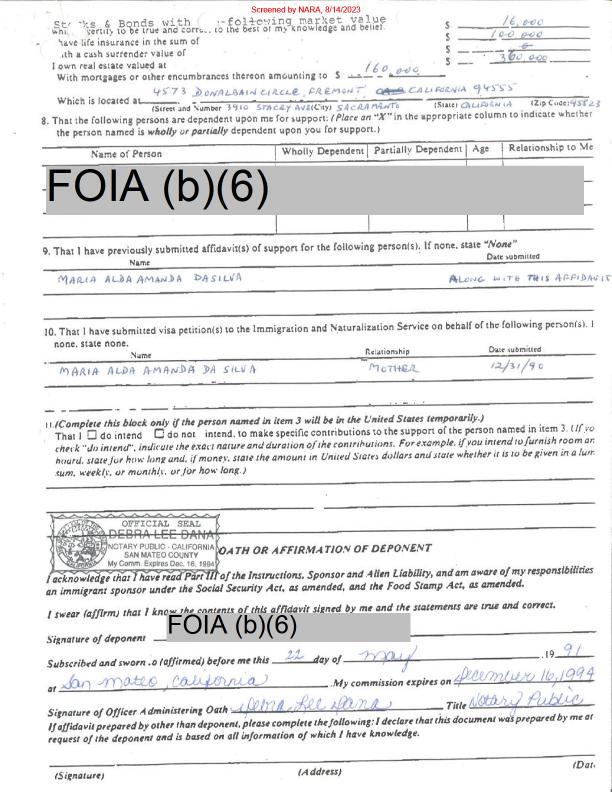 Screened by NARA, 8/14/2023
Stocks & Bonds with following market value $ 16,000
certify to be true and correct to the best of my knowledge and belief.
have life insurance in the sum of $ 100,000
With a cash surrender value of $ 0
I own real estate valued at $ 360,000
With mortgages or other encumbrances thereon amounting to $ 160,000
4573 DONALBAIN CIRCLE, FREMONT, CALIFORNIA 94555
Which is located at 3910 STACEY AVE SACRAMENTO CALIFORNIA 95823
(Street and Number (City) (State) (Zip Code)
8. That the following persons are dependent upon me for support: (Place an "X" in the appropriate column to indicate whether
the person named is wholly or partially dependent upon you for support.)
Name of Person Wholly Dependent Partially Dependent Age Relationship to Me
FOIA (b)(6)
9. That I have previously submitted affidavit(s) of support for the following person(s). If none, state "None"
Name Date submitted
MARIA ALDA AMANDA DASILVA ALONG WITH THIS AFFIDAVIT
10. That I have submitted visa petition(s) to the Immigration and Naturalization Service on behalf of the following person(s). I
none, state none.
Name Relationship Date submitted
MARIA ALDA AMANDA DA SILVA MOTHER 12/31/90
11. (Complete this block only if the person named in item 3 will be in the United States temporarily.)
That I ☐ do intend ☐ do not intend, to make specific contributions to the support of the person named in item 3. (If yo
check "do intend", indicate the exact nature and duration of the contributions. For example, if you intend to furnish room an
board, state for how long and, if money, state the amount in United States dollars and state whether it is to be given in a lum
sum, weekly, or monthly, or for how long.)
OFFICIAL SEAL
DEBRA LEE DANA
NOTARY PUBLIC - CALIFORNIA
SAN MATEO COUNTY
My Comm. Expires Dec. 16, 1994
OATH OR AFFIRMATION OF DEPONENT
I acknowledge that I have read Part III of the Instructions, Sponsor and Alien Liability, and am aware of my responsibilities
an immigrant sponsor under the Social Security Act, as amended, and the Food Stamp Act, as amended.
I swear (affirm) that I know the contents of this affidavit signed by me and the statements are true and correct.
Signature of deponent FOIA (b)(6)
Subscribed and sworn to (affirmed) before me this 22 day of may .19 91
at San Mateo, California .My commission expires on December 16, 1994
Signature of Officer Administering Oath Debra Lee Dana Title Notary Public
If affidavit prepared by other than deponent, please complete the following: I declare that this document was prepared by me at
request of the deponent and is based on all information of which I have knowledge.
(Signature) (Address) (Dat